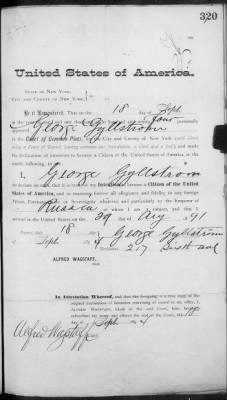 320
United States of America.
STATE OF NEW YORK,
CITY AND COUNTY OF NEW YORK,
Be it Remembered, That on the 18 day of Sept
in the year of our Lord one thousand eight hundred and ninety four personally
appeared George Gyllstrom
in the Court of Common Pleas, for the City and County of New York (said Court
being a Court of Record, having common law jurisdiction, a Clerk and a Seal), and made
his declaration of intention to become a Citizen of the United States of America, in the
words following, to wit:
I, George Gyllstrom
do declare on oath, that it is bona fide my Intention to become a Citizen of the United
States of America, and to renounce forever all allegiance and fidelity to any foreign
Prince, Potentate, State or Sovereignty whatever, and particularly to the Emperor
of Russia of whom I am a subject, and that I
arrived in the United States on the 29 day of Aug 91
Sworn, this 18 day
Sept 4 George Gyllstrom
217 Sixth ave
ALFRED WAGSTAFF,
Clerk
In Attestation Whereof, and that the foregoing is a true copy of the
original declaration of intention remaining of record in my office, I,
ALFRED WAGSTAFF, Clerk of the said Court, have hereunto
subscribed my name and affixed the seal of the Court, this 18
Sept 4
Alfred Wagstaff